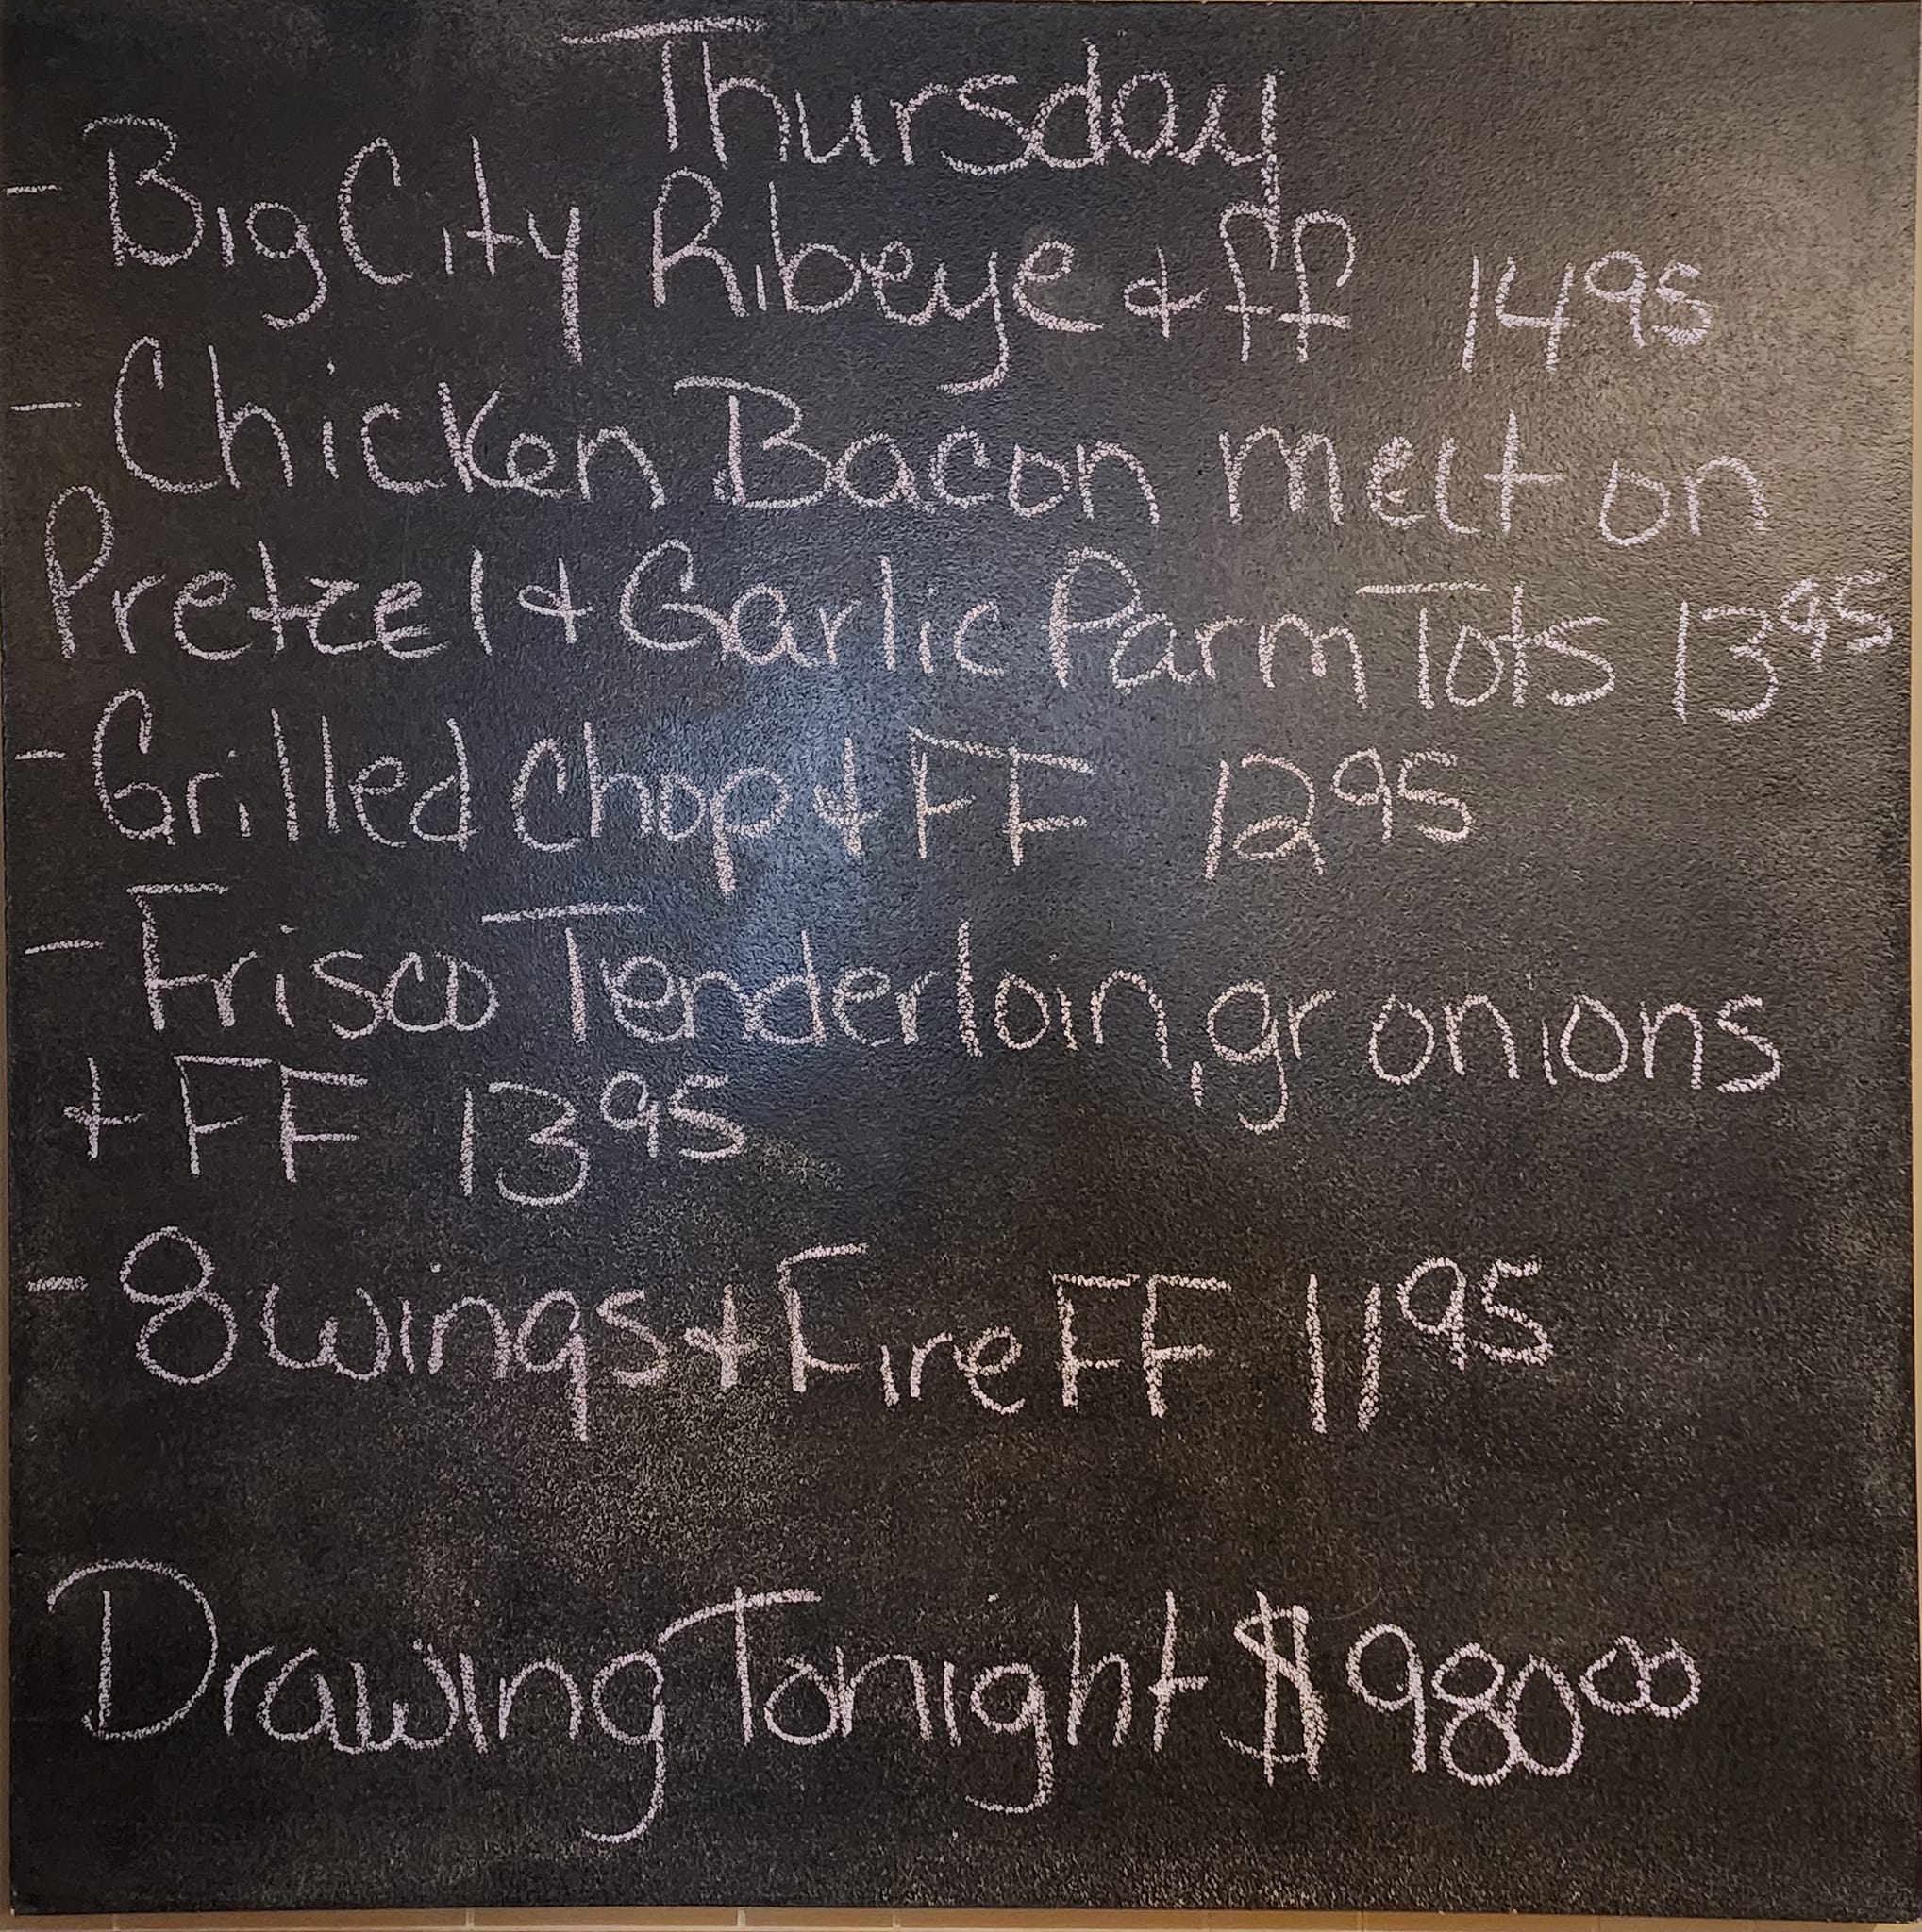 Thursday
- Big City Ribeye & ff 14 95
- Chicken Bacon melt on
Pretzel & Garlic Parm Tots 13 95
- Grilled Chop & FF 12 95
- Frisco Tenderloin, gr onions
+ FF 13 95
- 8 wings & Fire FF 11 95
Drawing Tonight $980 00